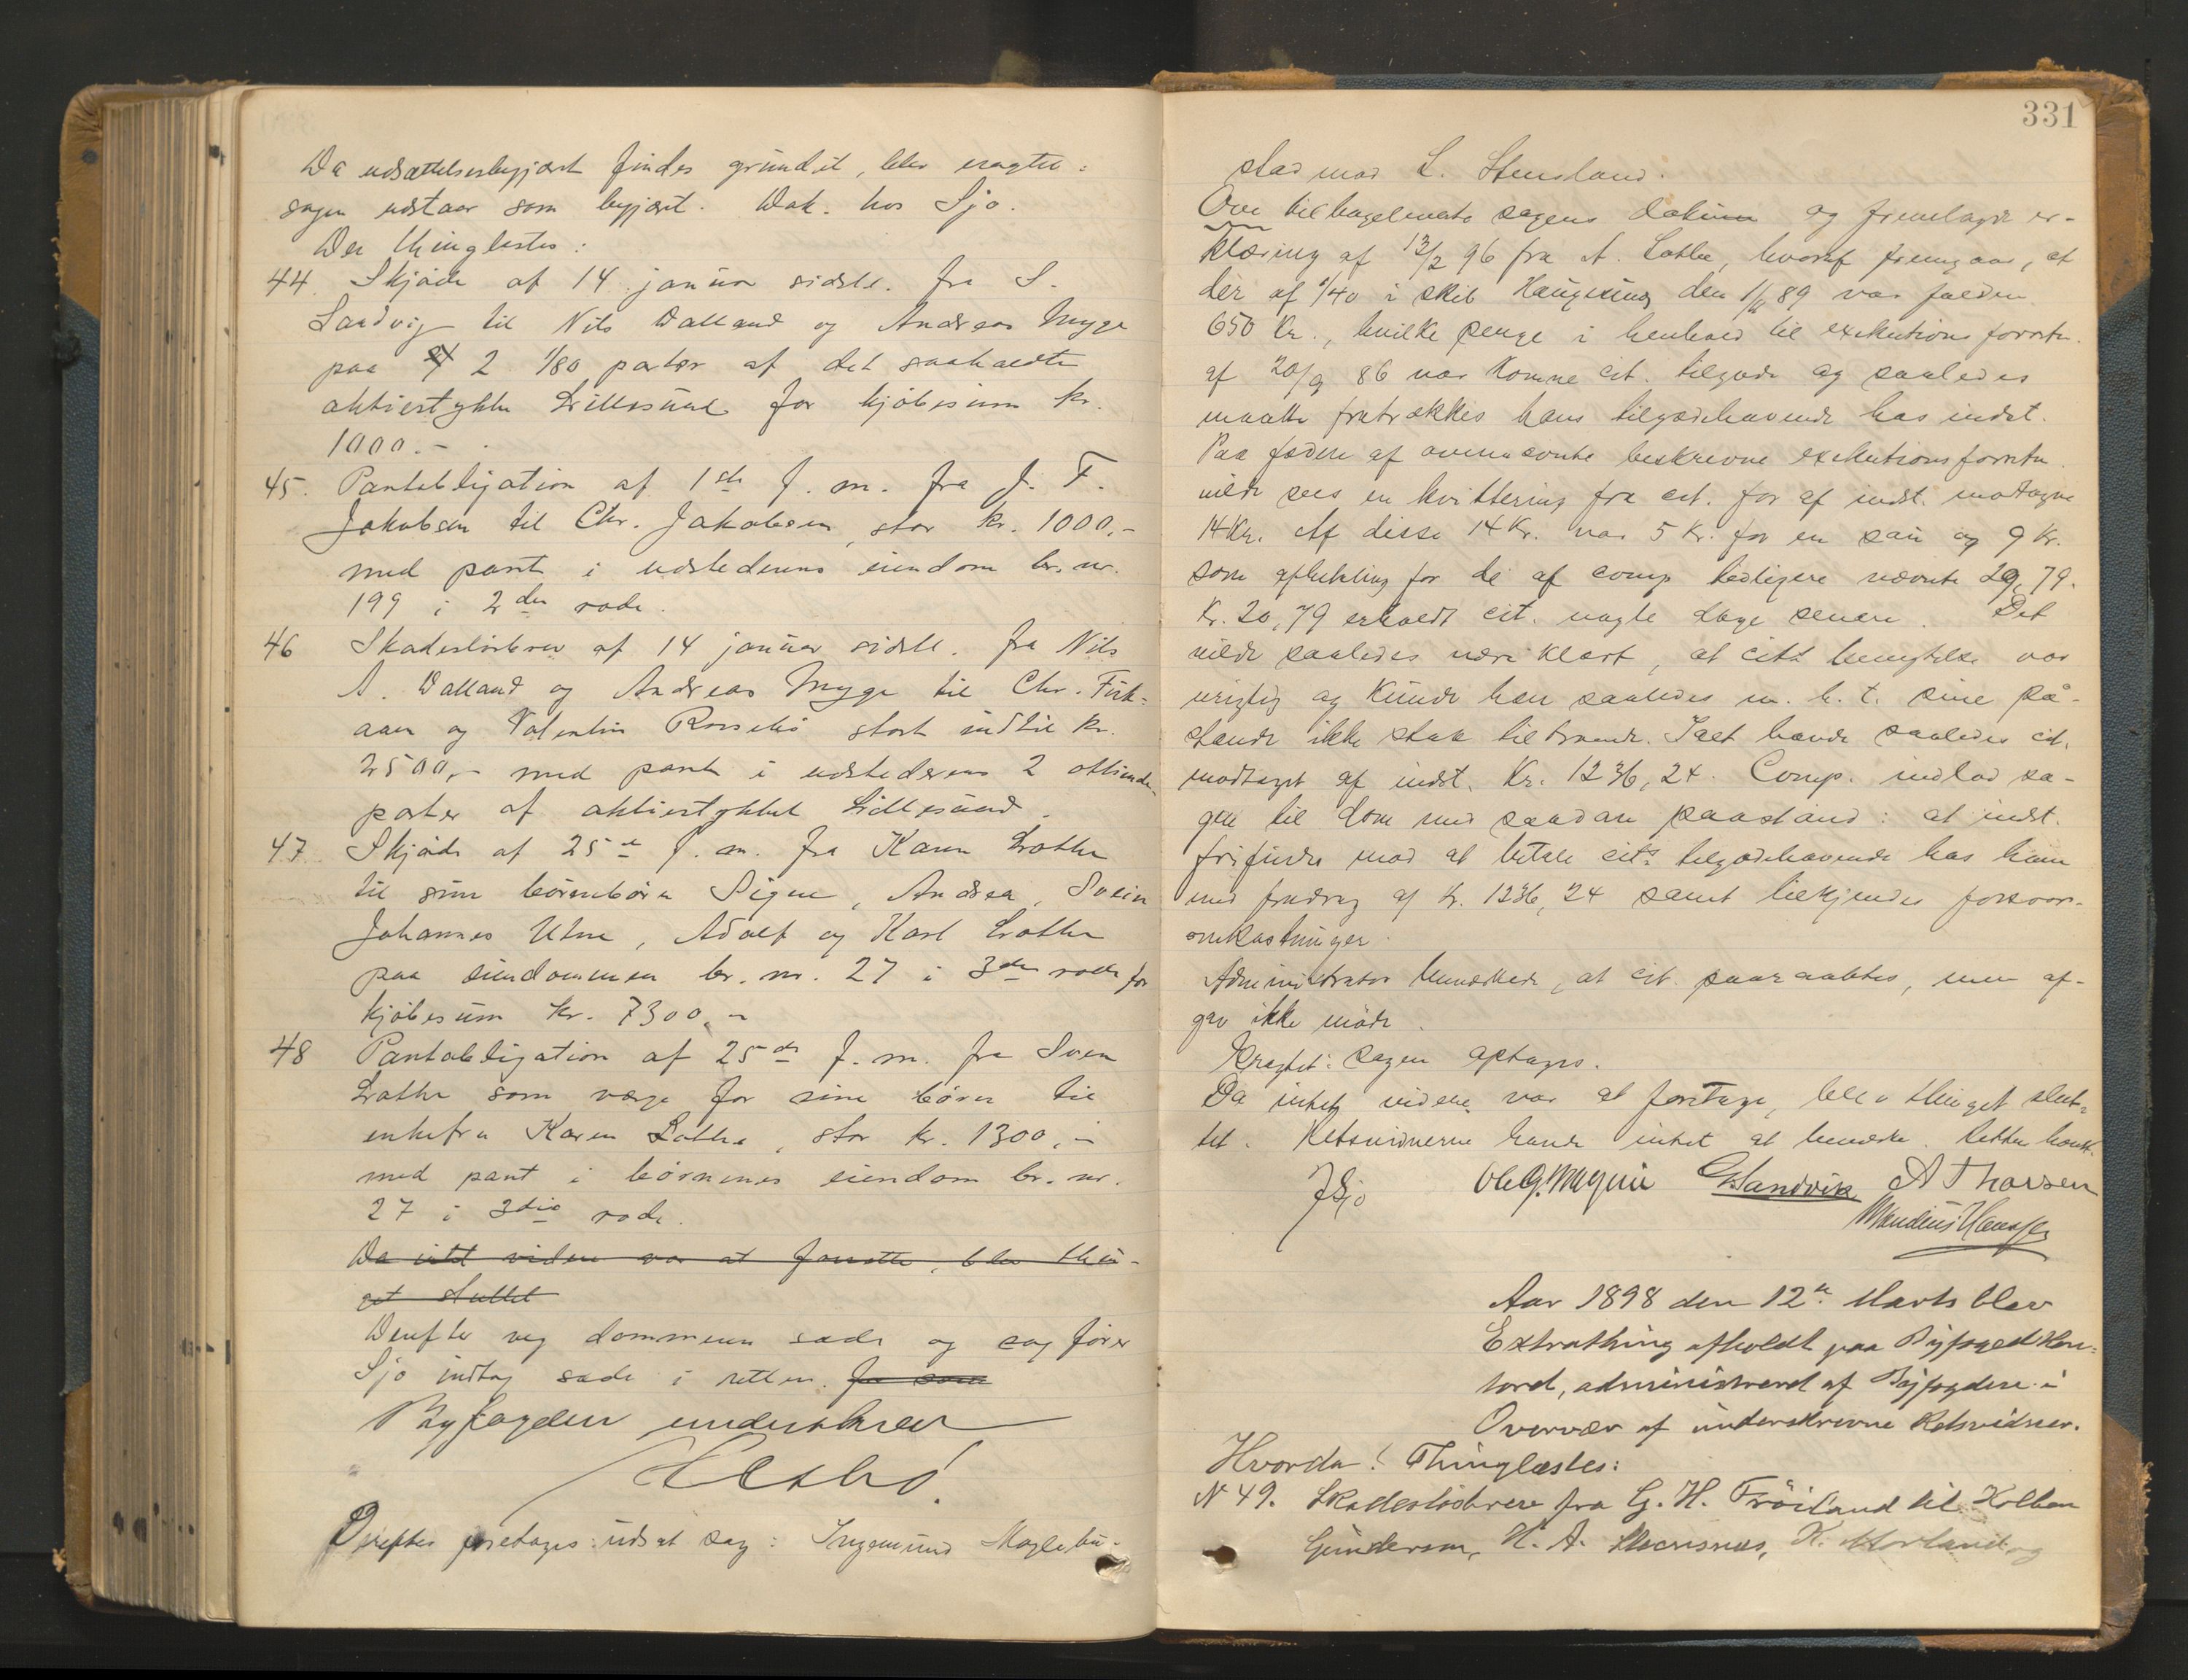 Da udsættelsesbegjæret findes grundet, blev eragtet:
sagen udstaar som begjæret. Dok. hos Sjo.
Der thinglæstes:
44. Skjøde af 14 januar sidstl. fra S.
Sandvig til Nils Valland og Andreas Myge
paa 2 1/80 parter af det saakaldte
aktiestykke Lillesund for kjøbesum kr.
1000.-
45. Pantobligation af 1ste f. m. fra J. F.
Jakobsen til Chr. Jakobsen, stor kr. 1000,-
med pant i udstederens eiendom br. nr.
199 i 2den rode.
46 Skadesløsbrev af 14 januar sidstl. fra Nils
A. Valland og Andreas Myge til Chr.
og Valentin stort indtil kr.
2500,- med pant i udstedernes 2 ottiende
parter af aktiestykket Lillesund.
47. Skjøde af 25de f. m. fra Karen Lothe
til sine børnebørn Signe, Andrea, Svein
Johannes Utne, Adolf og Karl Lothe
paa eiendommen br. nr. 27 i 3die rode for
kjøbesum kr. 7300,-
48 Pantobligation af 25de f. m. fra Sven
Lothe som værge for sine børn til
enkefru Karen Lothe, stor kr. 1300,-
med pant i børnenes eiendom br. nr.
27 i 3die rode.
Da intet videre var at foretage, blev thin-
get sluttet
Derefter veg dommeren sæde og sagfører
Sjo indtog sæde i retten. for som
Byfogden underskrev
Derefter foretoges udsat sag: Ingemund Moglebu-
331
stad mod L. Stensland.
Ove tilbageleverte sagens dokum og fremlagde er-
klæring af 13/2 96 fra A. Lothe, hvoraf fremgaar, at
der af 1/40 i skib Haugesund den 1/ 89 var falden
650 Kr., hvilke penge i henhold til exekutions forretn.
af 20/9 86 var komne cit. tilgode og saaledes
maatte fratrækkes hans tilgodehavende hos indst.
Paa foden af ovennævnte beskrevne exekutionsforretn.
vilde sees en kvittering fra cit. for af indst. modtagne
14 Kr. Af disse 14 Kr. var 5 Kr. for en sau og 9 Kr.
som afbetaling for de af comp. tidligere nævnte 29,79.
Kr. 20,79 erholdt cit. nogle dage senere. Det
vilde saaledes være klart, at cits benegtelse var
urigtig og kunde han saaledes m. h. t. sine på-
stande ikke staa til troende. Ialt havde saaledes cit.
modtaget af indst. Kr. 1236,24. Comp. indlod sa-
gen til dom med saadan paastand: at indst.
frifindes mod at betale cits tilgodehavende hos ham
med fradrag af Kr. 1236,24 samt tilkjendes forsvars-
omkostninger.
Administrator bemærkede, at cit. paaraabtes, men af-
gav ikke møde.
Eragtet: Sagen optages.
Da intet videre var at foretage, blev thinget slut-
tet. Retsvidnerne havde intet at bemærke. Retten hævet.
J Sjo Ole G. G Sandvik A Thorsen
Mandius Hansen
Aar 1898 den 12te Marts blev
Extrathing afholdt paa Byfogedkon-
toret, administreret af Byfogden i
Overvær af underskrevne Retsvidner.
Hvorda! Thinglæstes:
N 49. Skadesløsbrev fra G. H. Frøiland til Kolben
Gundersen, H. A. K. og